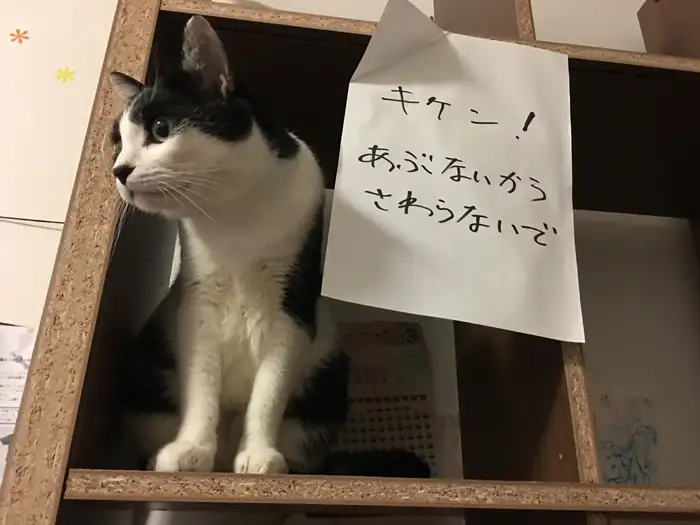 キケン!
あぶないから
さわらないで